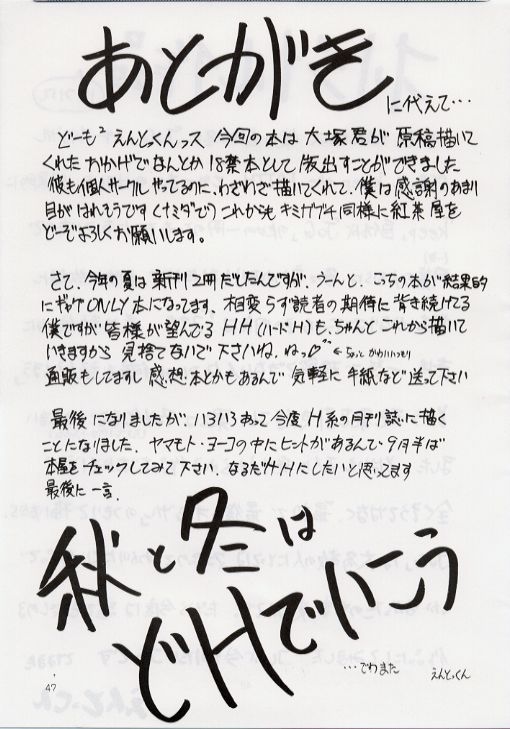 あとがき
に代えて…
どーも² えんどっくんっス 今回の本は 大塚君が 原稿描いて
くれたおかげでなんとか 18禁本として 版出すことができました
彼も個人サークルやってるのに、わざわざ描いてくれて、僕は感謝のあまり
目がはれそうです(ナミダで) これからも キミガブチ同様に紅茶屋を
どーぞよろしくお願いします。
さて、今年の夏は新刊2冊だしたんですが、うーんと、こっちの本が結果的
にギャグONLY本になってます、相変らず読者の期待に背き続けてる
僕ですが 皆様が望んでる HH(ハードH)も、ちゃんと これから描いて
いきますから 見捨てないで下さいね。ね。♡ ←ちょっとかわいいつもり
通販もしてますし 感想本とかもあるんで 気軽に 手紙など 送って下さい
最後になりましたが、いろいろあって 今度 H系の月刊誌に描く
ことになりました、ヤマモト・ヨーコの中にヒントがあるんで、9月半ば
本屋をチェックしてみて下さい、なるだけHHにしたいと思ってます
最後に一言、
秋と冬は
どHでいこう
…でわまた えんどっくん
47